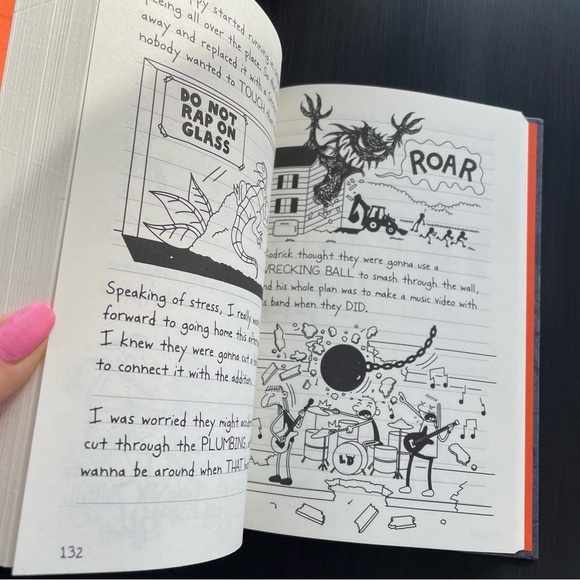 started running
peeing all over the place. So
away and replaced it with a
nobody wanted to TOUCH
DO NOT
RAP ON
GLASS
Speaking of stress, I really
forward to going home this
I knew they were gonna cut a
to connect it with the addition.
I was worried they might
cut through the PLUMBING,
wanna be around when THAT
132
ROAR
Rodrick thought they were gonna use a
WRECKING BALL to smash through the wall,
and his whole plan was to make a music video with
his band when they DID.
LD